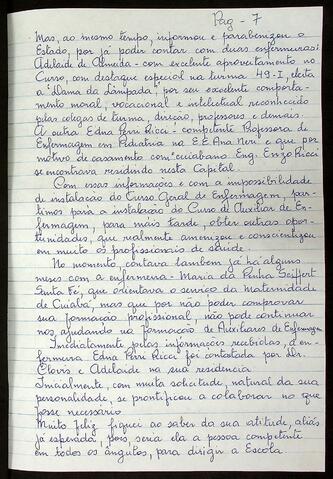 Pag - 7
Mas, ao mesmo tempo, informou e parabenizou o
Estado, por já poder contar com duas enfermeiras:
Adelaide de Almeida - com excelente aproveitamento no
Curso, com destaque especial na turma 49-I, eleita
a "Dama da Lâmpada", por seu excelente comporta-
mento moral, vocacional e intelectual reconhecido
pelas colegas de turma, direção, professores e demais.
A outra Edna Perri Ricci - competente Professora de
Enfermagem em Pediatria na E.E. Ana Neri e que por
motivo de casamento com cuiabano Eng. Enzo Ricci
encontrava residindo nesta Capital.
Com essas informações e com a impossibilidade
de instalação do Curso Geral de Enfermagem, par-
timos para a instalação do Curso de Auxiliar de En-
fermagem, para mais tarde, obter outras opor-
tunidades, que realmente amenizou e conscientizou
em muito os profissionais de saúde
No momento, contava também já há alguns
meses com a enfermeira - Maria da Penha Seiffert
Santa Fé, que orientava o serviço da Maternidade
de Cuiabá, mas que por não poder comprovar
sua formação profissional, não pôde continuar
nos ajudando na formação de Auxiliares de Enfermagem
Imediatamente pelas informações recebidas, a en-
fermeira Edna Perri Ricci foi contatada por Dr.
Clovis e Adelaide na sua residência
Inicialmente, com muita solicitude, natural da sua
personalidade, se prontificou a colaborar no que
fosse necessário
Muito feliz fiquei ao saber da sua atitude, aliás
já esperada, pois, seria ela a pessoa competente
em todos os ângulos, para dirigir a Escola.